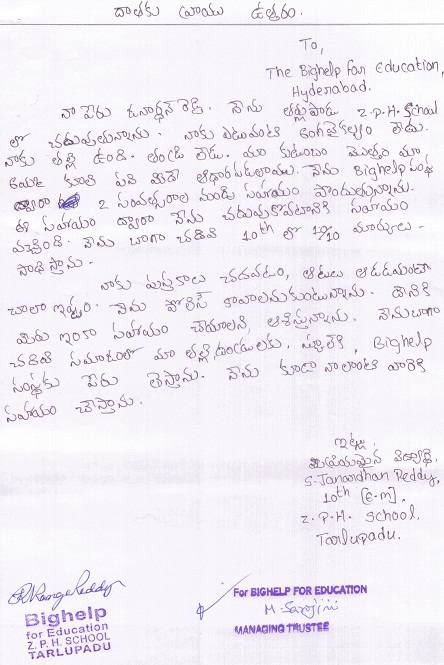 దాతకు వ్రాయు ఉత్తరం.
To,
The Bighelp for Education,
Hyderabad.
నా పేరు జనార్ధన్ రెడ్డి. నేను తర్లుపాడు Z.P.H. School
లో చదువుతున్నాను. నాకు ఎటువంటి అంగవైకల్యం లేదు.
నాకు తల్లి ఉంది. తండ్రి లేడు. మా కుటుంబం మొత్తం మా
కూలి పని మీదే ఆధారపడతాము. నేను Bighelp సంస్థ
ద్వారా 2 సంవత్సరాల నుండి సహాయం పొందుతున్నాను.
ఈ సహాయం ద్వారా నేను చదువుకోవటానికి సహాయం
వచ్చింది. నేను బాగా చదివి 10th లో 10/10 మార్కులు
సాధిస్తాను.
నాకు పుస్తకాలు చదవడం, ఆటలు ఆడడమంటే
చాలా ఇష్టం. నేను పోలీస్ కావాలనుకుంటున్నాను. దానికి
మీరు ఇంకా సహాయం చేయాలని, ఆశిస్తున్నాను. నేను బాగా
చదివి సమాజంలో మా తల్లిదండ్రులకు, స్కూల్‌కి, Bighelp
సంస్థకు పేరు తెస్తాను. నేను కూడా నాలాంటి వారికి
సహాయం చేస్తాను.
ఇట్లు
మీ ప్రియమైన విద్యార్థి,
S. Janardhan Reddy,
10th [E.M],
Z.P.H. School,
Tarlupadu.
Bighelp
for Education
Z. P. H. SCHOOL
TARLUPADU
For BIGHELP FOR EDUCATION
M. Sarojini
MANAGING TRUSTEE